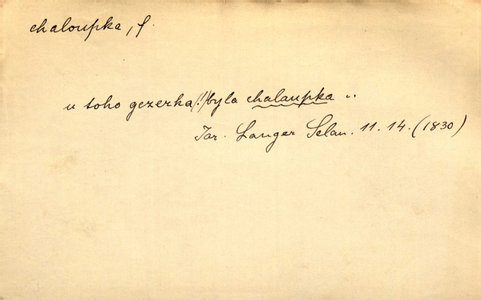 chaloupka, f.
u toho gezerka/!/byla chalaupka ..
Jar. Langer Selan. 11. 14. (1830)